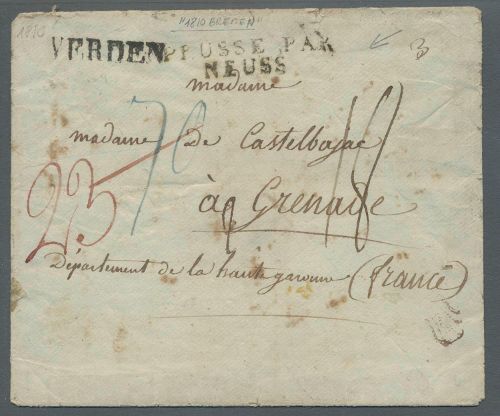 1810
"1810 BREMEN"
3
VERDEN
PRUSSE PAR
NEUSS
madame
madame De Castelbajac
à Grenade
Département de la haute garonne (france)
23
18